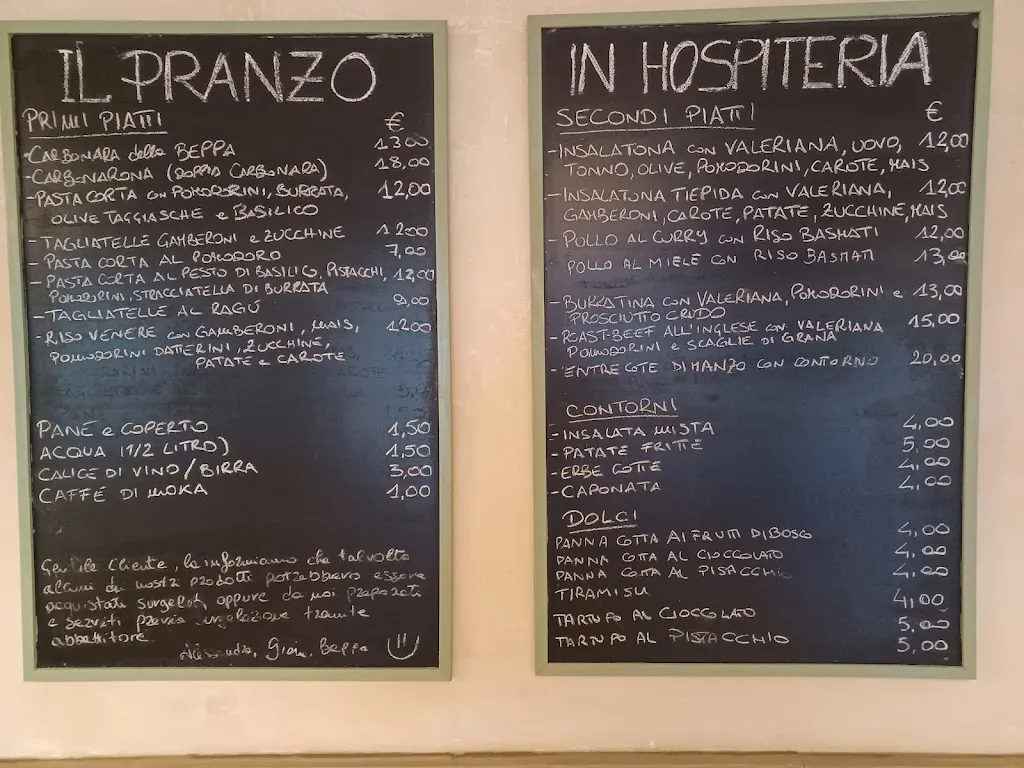 IL PRANZO
PRIMI PIATTI €
-CARBONARA della BEPPA 13,00
-CARBONARONA (DOPPIA CARBONARA) 18,00
-PASTA CORTA con POMODORINI, BURRATA, 12,00
OLIVE TAGGIASCHE e BASILICO
-TAGLIATELLE GAMBERONI e ZUCCHINE 12,00
-PASTA CORTA AL POMODORO 7,00
-PASTA CORTA AL PESTO DI BASILICO, PISTACCHI, 12,00
POMODORINI, STRACCIATELLA DI BURRATA
-TAGLIATELLE AL RAGÚ 9,00
-RISO VENERE con GAMBERONI, MAIS, 12,00
POMODORINI DATTERINI, ZUCCHINE,
PATATE e CAROTE
PANE e COPERTO 1,50
ACQUA (1/2 LITRO) 1,50
CALICE DI VINO/BIRRA 3,00
CAFFÉ DI MOKA 1,00
Gentile Cliente, la informiamo che talvolta
alcuni dei nostri prodotti potrebbero essere
acquistati surgelati, oppure da noi preparati
e serviti previa surgelazione tramite
abbattitore.
Alessandra, Beppa
IN HOSPITERIA
SECONDI PIATTI €
-INSALATONA con VALERIANA, UOVO, 12,00
TONNO, OLIVE, POMODORINI, CAROTE, MAIS
-INSALATONA TIEPIDA con VALERIANA, 12,00
GAMBERONI, CAROTE, PATATE, ZUCCHINE, MAIS
-POLLO AL CURRY con RISO BASMATI 12,00
-POLLO AL MIELE con RISO BASMATI 13,00
-BURRATINA con VALERIANA, POMODORINI e 13,00
PROSCIUTTO CRUDO
-ROAST-BEEF ALL'INGLESE con VALERIANA 15,00
POMODORINI e SCAGLIE DI GRANA
-ENTRECOTE DI MANZO CON CONTORNO 20,00
CONTORNI
-INSALATA MISTA 4,00
-PATATE FRITTE 5,00
-ERBE COTTE 4,00
-CAPONATA 4,00
DOLCI
PANNA COTTA AI FRUTTI DI BOSCO 4,00
PANNA COTTA AL CIOCCOLATO 4,00
PANNA COTTA AL PISTACCHIO 4,00
TIRAMISU 4,00
TARTUFO AL CIOCCOLATO 5,00
TARTUFO AL PISTACCHIO 5,00